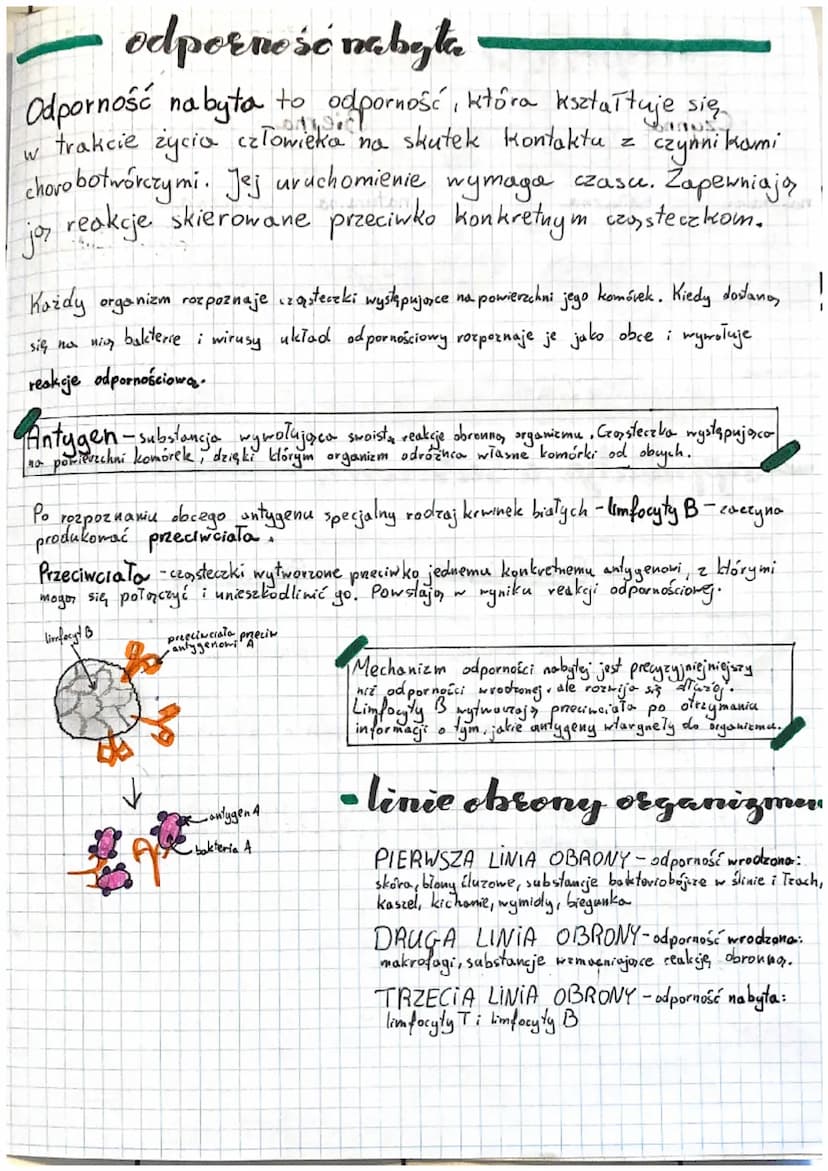 odporność nabyta
Odporność nabyta to odporność, która kształtuje się
w trakcie życia człowieka na skutek kontaktu z czynnikami
chorobotwórczymi. Jej uruchomienie wymaga czasu. Zapewniają
ją reakcje skierowane przeciwko konkretnym cząsteczkom.
Każdy organizm rozpoznaje cząsteczki występujące na powierzchni jego komórek. Kiedy dostaną
się na nią bakterie i wirusy układ odpornościowy rozpoznaje je jako obce i wywołuje
reakcje odpornościową.
Antygen - substancja wywołująca swoistą reakcje obronną organizmu. Cząsteczka występująca
na powierzchni komórek, dzięki którym organizm odróżnia własne komórki od obcych.
Po rozpoznaniu obcego antygenu specjalny rodzaj krwinek białych - limfocyty B - zaczyna
produkować przeciwciała.
Przeciwciała - cząsteczki wytworzone przeciwko jednemu konkretnemu antygenowi, z którymi
mogą się połączyć i unieszkodliwić go. Powstają w wyniku reakcji odpornościowej.
limfocyt B
przeciwciała przeciw
antygenowi A
Mechanizm odporności nabytej jest precyzyjniejniejszy
niż odporności wrodzonej, ale rozwija się dłużej.
Limfocyty B wytwarzają przeciwciała po otrzymaniu
informacji o tym, jakie antygeny wtargnęły do organizmu.
antygen A
bakteria A
linie obrony organizmu
PIERWSZA LINIA OBRONY - odporność wrodzona:
skóra, błony śluzowe, substancje bakteriobójcze w ślinie i łzach,
kaszel, kichanie, wymioty, biegunka
DRUGA LINIA OBRONY - odporność wrodzona:
makrofagi, substancje wzmacniające reakcję obronną.
TRZECIA LINIA OBRONY - odporność nabyta:
limfocyty T i limfocyty B